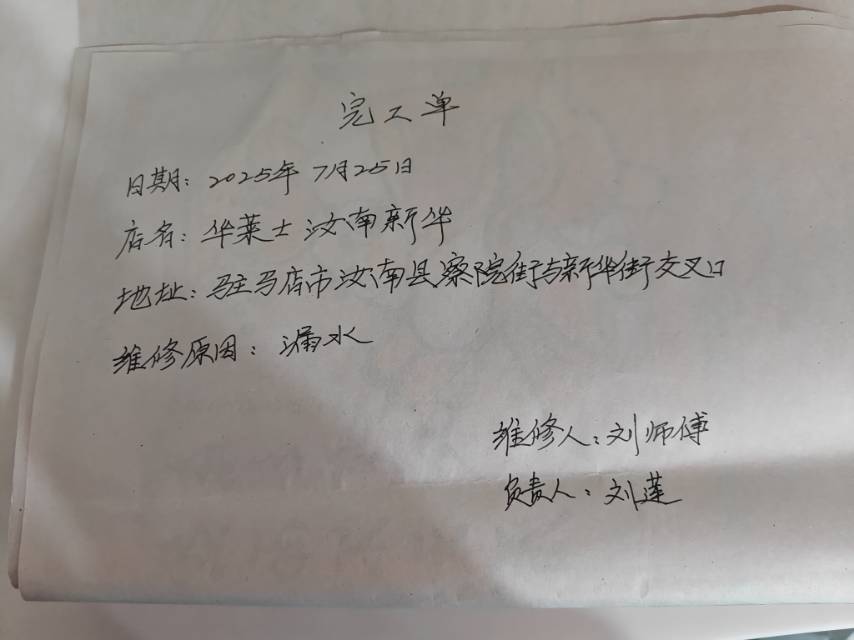 完工单
日期：2025年7月25日
店名：华莱士汝南新华
地址：驻马店市汝南县察院街与新华街交叉口
维修原因：漏水
维修人：刘师傅
负责人：刘莲